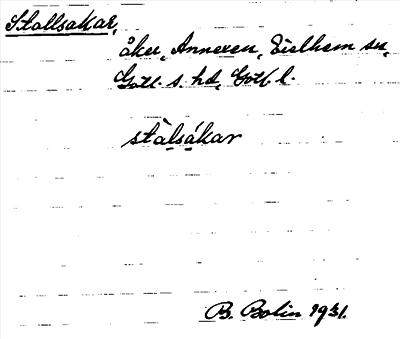 Stallsakar,
åker, Annexen, Eielhem sn,
Gotl. s. hd, Gotl. l.
stàlsákar
B. Bolin 1931.